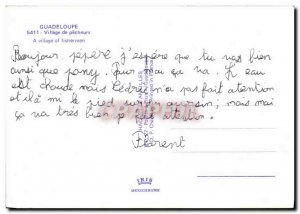 GUADELOUPE
5411 - Village de pêcheurs
A village of fishermen
Bonjour, pépère j'espère que tu vas bien
ainsi que pony. Pour moi ça va. L'eau
est chaude mais Cédric n'a pas fait attention
et il a mi le pied sur oursin; mais moi
ça va très bien je fais attention.
Florent
IRIS
MEXICHROME